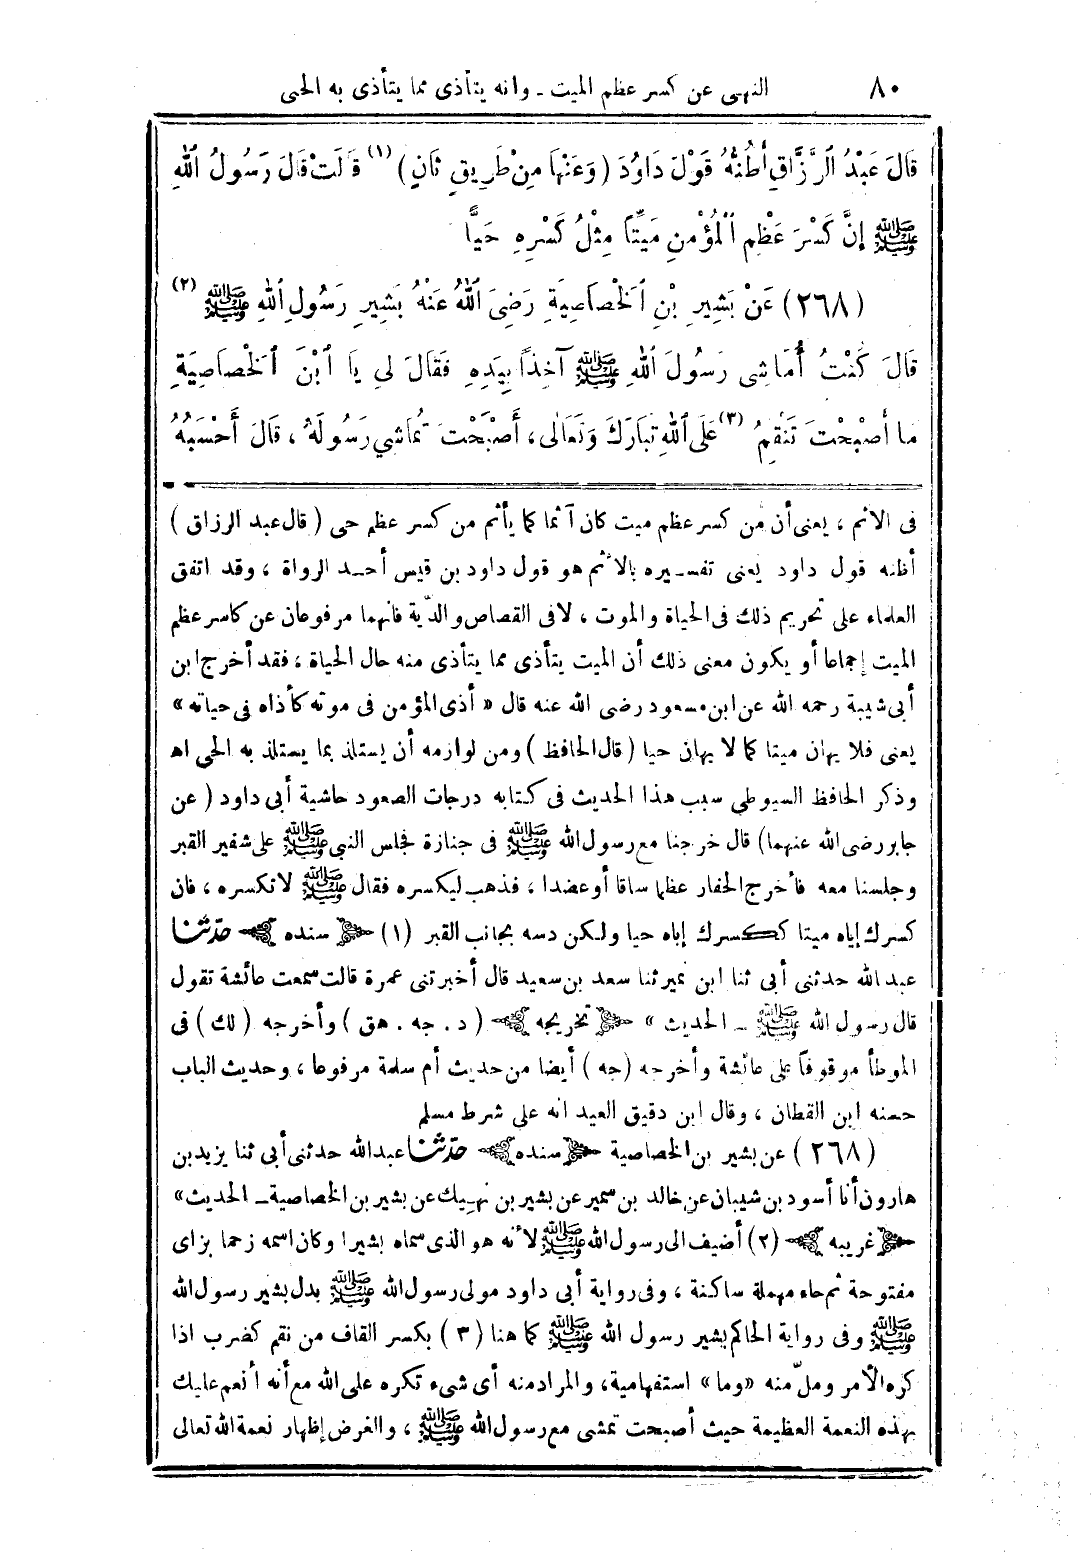 ٨٠ النهى عن كسر عظم الميت ـ وانه يتأذى مما يتأذى به الحى
قَالَ عَبْدُ الرَّزَّاقِ أَظُنُّهُ قَوْلَ دَاوُدَ (وَعَنْهَا مِنْ طَرِيقٍ ثَانٍ) (١) قَالَتْ قَالَ رَسُولُ اللهِ
ﷺ إِنَّ كَسْرَ عَظْمِ الْمُؤْمِنِ مَيِّتًا مِثْلُ كَسْرِهِ حَيًّا
(٢٦٨) عَنْ بَشِيرِ بْنِ الْخَصَاصِيَةِ رَضِيَ اللهُ عَنْهُ بَشِيرِ رَسُولِ اللهِ ﷺ (٢)
قَالَ كُنْتُ أُمَاشِى رَسُولَ اللهِ ﷺ آخِذًا بِيَدِهِ فَقَالَ لِي يَا ابْنَ الْخَصَاصِيَةِ
مَا أَصْبَحْتَ تَنْقِمُ (٣) عَلَى اللهِ تَبَارَكَ وَتَعَالَى، أَصْبَحْتَ تُمَاشِي رَسُولَهُ، قَالَ أَحْسَبُهُ
فى الاثم ، يعنى أن من كسر عظم ميت كان آثما كما يأثم من كسر عظم حى (قال عبد الرزاق)
أظنه قول داود يعنى تفسيره بالاثم هو قول داود بن قيس أحد الرواة ، وقد اتفق
العلماء على تحريم ذلك فى الحياة والموت ، لا فى القصاص والدّية فانهما مرفوعان عن كاسر عظم
الميت إجماعا أو يكون معنى ذلك أن الميت يتأذى مما يتأذى منه حال الحياة ، فقد أخرج ابن
أبى شيبة رحمه الله عن ابن مسعود رضى الله عنه قال « أذى المؤمن فى موته كأذاه فى حياته »
يعنى فلا يهان ميتا كما لا يهان حيا (قال الحافظ) ومن لوازمه أن يستلذ بما يستلذ به الحى اه
وذكر الحافظ السيوطى سبب هذا الحديث فى كتابه درجات الصعود حاشية أبى داود (عن
جابر رضى الله عنهما) قال خرجنا مع رسول الله ﷺ فى جنازة فجلس النبى ﷺ على شفير القبر
وجلسنا معه فأخرج الحفار عظما ساقا أو عضدا ، فذهب ليكسره فقال ﷺ لاتكسره ، فان
كسرك إياه ميتا ككسرك إياه حيا ولكن دسه بجانب القبر (١) ﴿ سنده ﴾ حدّثنا
عبد الله حدثنى أبى ثنا ابن نمير ثنا سعد بن سعيد قال أخبرتنى عمرة قالت سمعت عائشة تقول
قال رسول الله ﷺ ـ الحديث » ﴿ تخريجه ﴾ (د . جه . هق) وأخرجه (لك) فى
الموطأ موقوفاً على عائشة وأخرجه (جه) أيضا من حديث أم سلمة مرفوعا ، وحديث الباب
حسنه ابن القطان ، وقال ابن دقيق العيد انه على شرط مسلم
(٢٦٨) عن بشير بن الخصاصية ﴿ سنده ﴾ حدّثنا عبدالله حدثنى أبى ثنا يزيد بن
هارون أنا أسود بن شيبان عن خالد بن سمير عن بشير بن نهيك عن بشير بن الخصاصية ـ الحديث »
﴿ غريبه ﴾ (٢) أضيف الى رسول الله ﷺ لأنه هو الذى سماه بشيرا وكان اسمه زحما بزاى
مفتوحة ثم حاء مهملة ساكنة ، وفى رواية أبى داود مولى رسول الله ﷺ بدل بشير رسول الله
ﷺ وفى رواية الحاكم بشير رسول الله ﷺ كما هنا (٣) بكسر القاف من نقم كضرب اذا
كره الأمر وملّ منه «وما» استفهامية، والمراد منه أى شىء تكره على الله مع أنه أنعم عليك
بهذه النعمة العظيمة حيث أصبحت تمشى مع رسول الله ﷺ ، والغرض إظهار نعمة الله تعالى